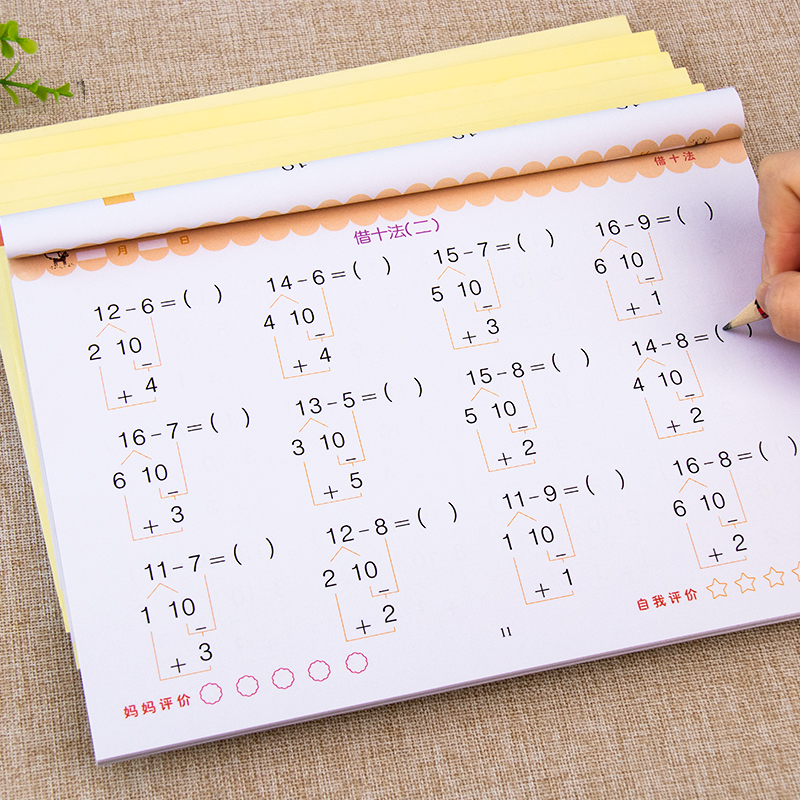 借十法
月 日
借十法(二)
12-6=( ) 14-6=( ) 15-7=( ) 16-9=( )
2 10 4 10 5 10 6 10
- - - -
+ 4 + 4 + 3 + 1
16-7=( ) 13-5=( ) 15-8=( ) 14-8=( )
6 10 3 10 5 10 4 10
- - - -
+ 3 + 5 + 2 + 2
11-7=( ) 12-8=( ) 11-9=( ) 16-8=( )
1 10 2 10 1 10 6 10
- - - -
+ 3 + 2 + 1 + 2
妈妈评价
11
自我评价